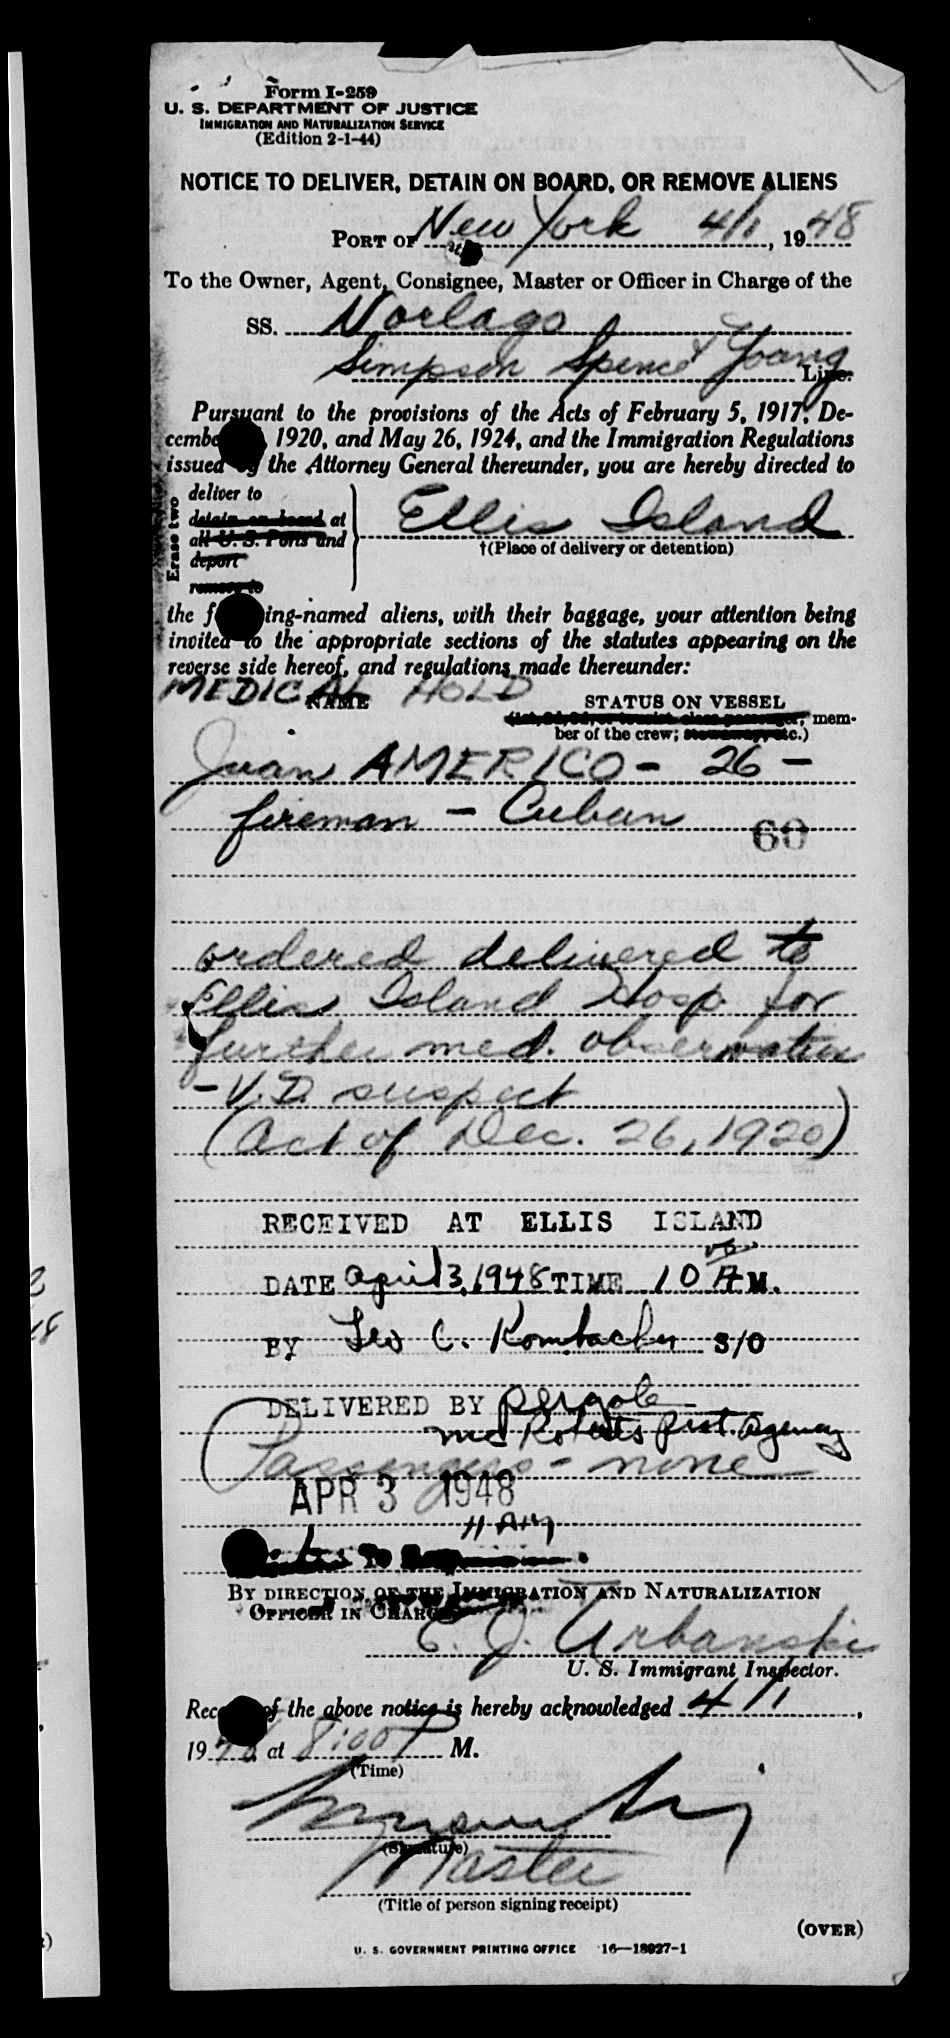 Form I-259
U. S. DEPARTMENT OF JUSTICE
IMMIGRATION AND NATURALIZATION SERVICE
(Edition 2-1-44)
NOTICE TO DELIVER, DETAIN ON BOARD, OR REMOVE ALIENS
PORT OF New York 4/1, 1948
To the Owner, Agent, Consignee, Master or Officer in Charge of the
SS. Norlago
Simpson Spence & Young Line.
Pursuant to the provisions of the Acts of February 5, 1917, De-
cembe 1920, and May 26, 1924, and the Immigration Regulations
issued by the Attorney General thereunder, you are hereby directed to
Erase two
deliver to
detain on board at
all U. S. Ports and
deport
remove to
Ellis Island
†(Place of delivery or detention)
the f ing-named aliens, with their baggage, your attention being
invited to the appropriate sections of the statutes appearing on the
reverse side hereof, and regulations made thereunder:
MEDICAL HOLD
NAME STATUS ON VESSEL
(1st, 2d, 3d, or tourist class passenger; mem-
ber of the crew; stowaway, etc.)
Juan AMERICO - 26 -
fireman - Cuban
60
ordered delivered to
Ellis Island Hosp for
further med. observation
- V.D. suspect
(Act of Dec. 26, 1920)
RECEIVED AT ELLIS ISLAND
DATE April 3, 1948 TIME 10 A M.
BY Leo C. S/O
DELIVERED BY
McRoberts Prot. Agency
(Passengers - none
APR 3 1948
11 AM
BY DIRECTION OF THE IMMIGRATION AND NATURALIZATION
OFFICER IN CHARGE
E. J. Urbanski
U. S. Immigrant Inspector.
Rec of the above notice is hereby acknowledged 4/1,
1948 at 8:00 P M.
(Time)
(Signature)
Master
(Title of person signing receipt)
(OVER)
U. S. GOVERNMENT PRINTING OFFICE 16—18927-1